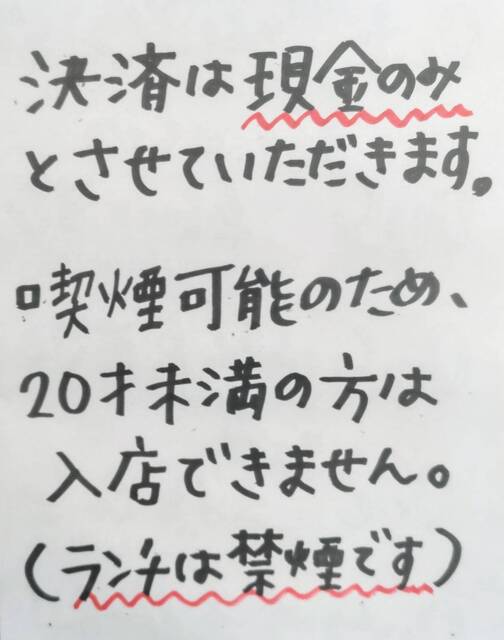 決済は現金のみ
とさせていただきます。
喫煙可能のため、
20才未満の方は
入店できません。
(ランチは禁煙です)